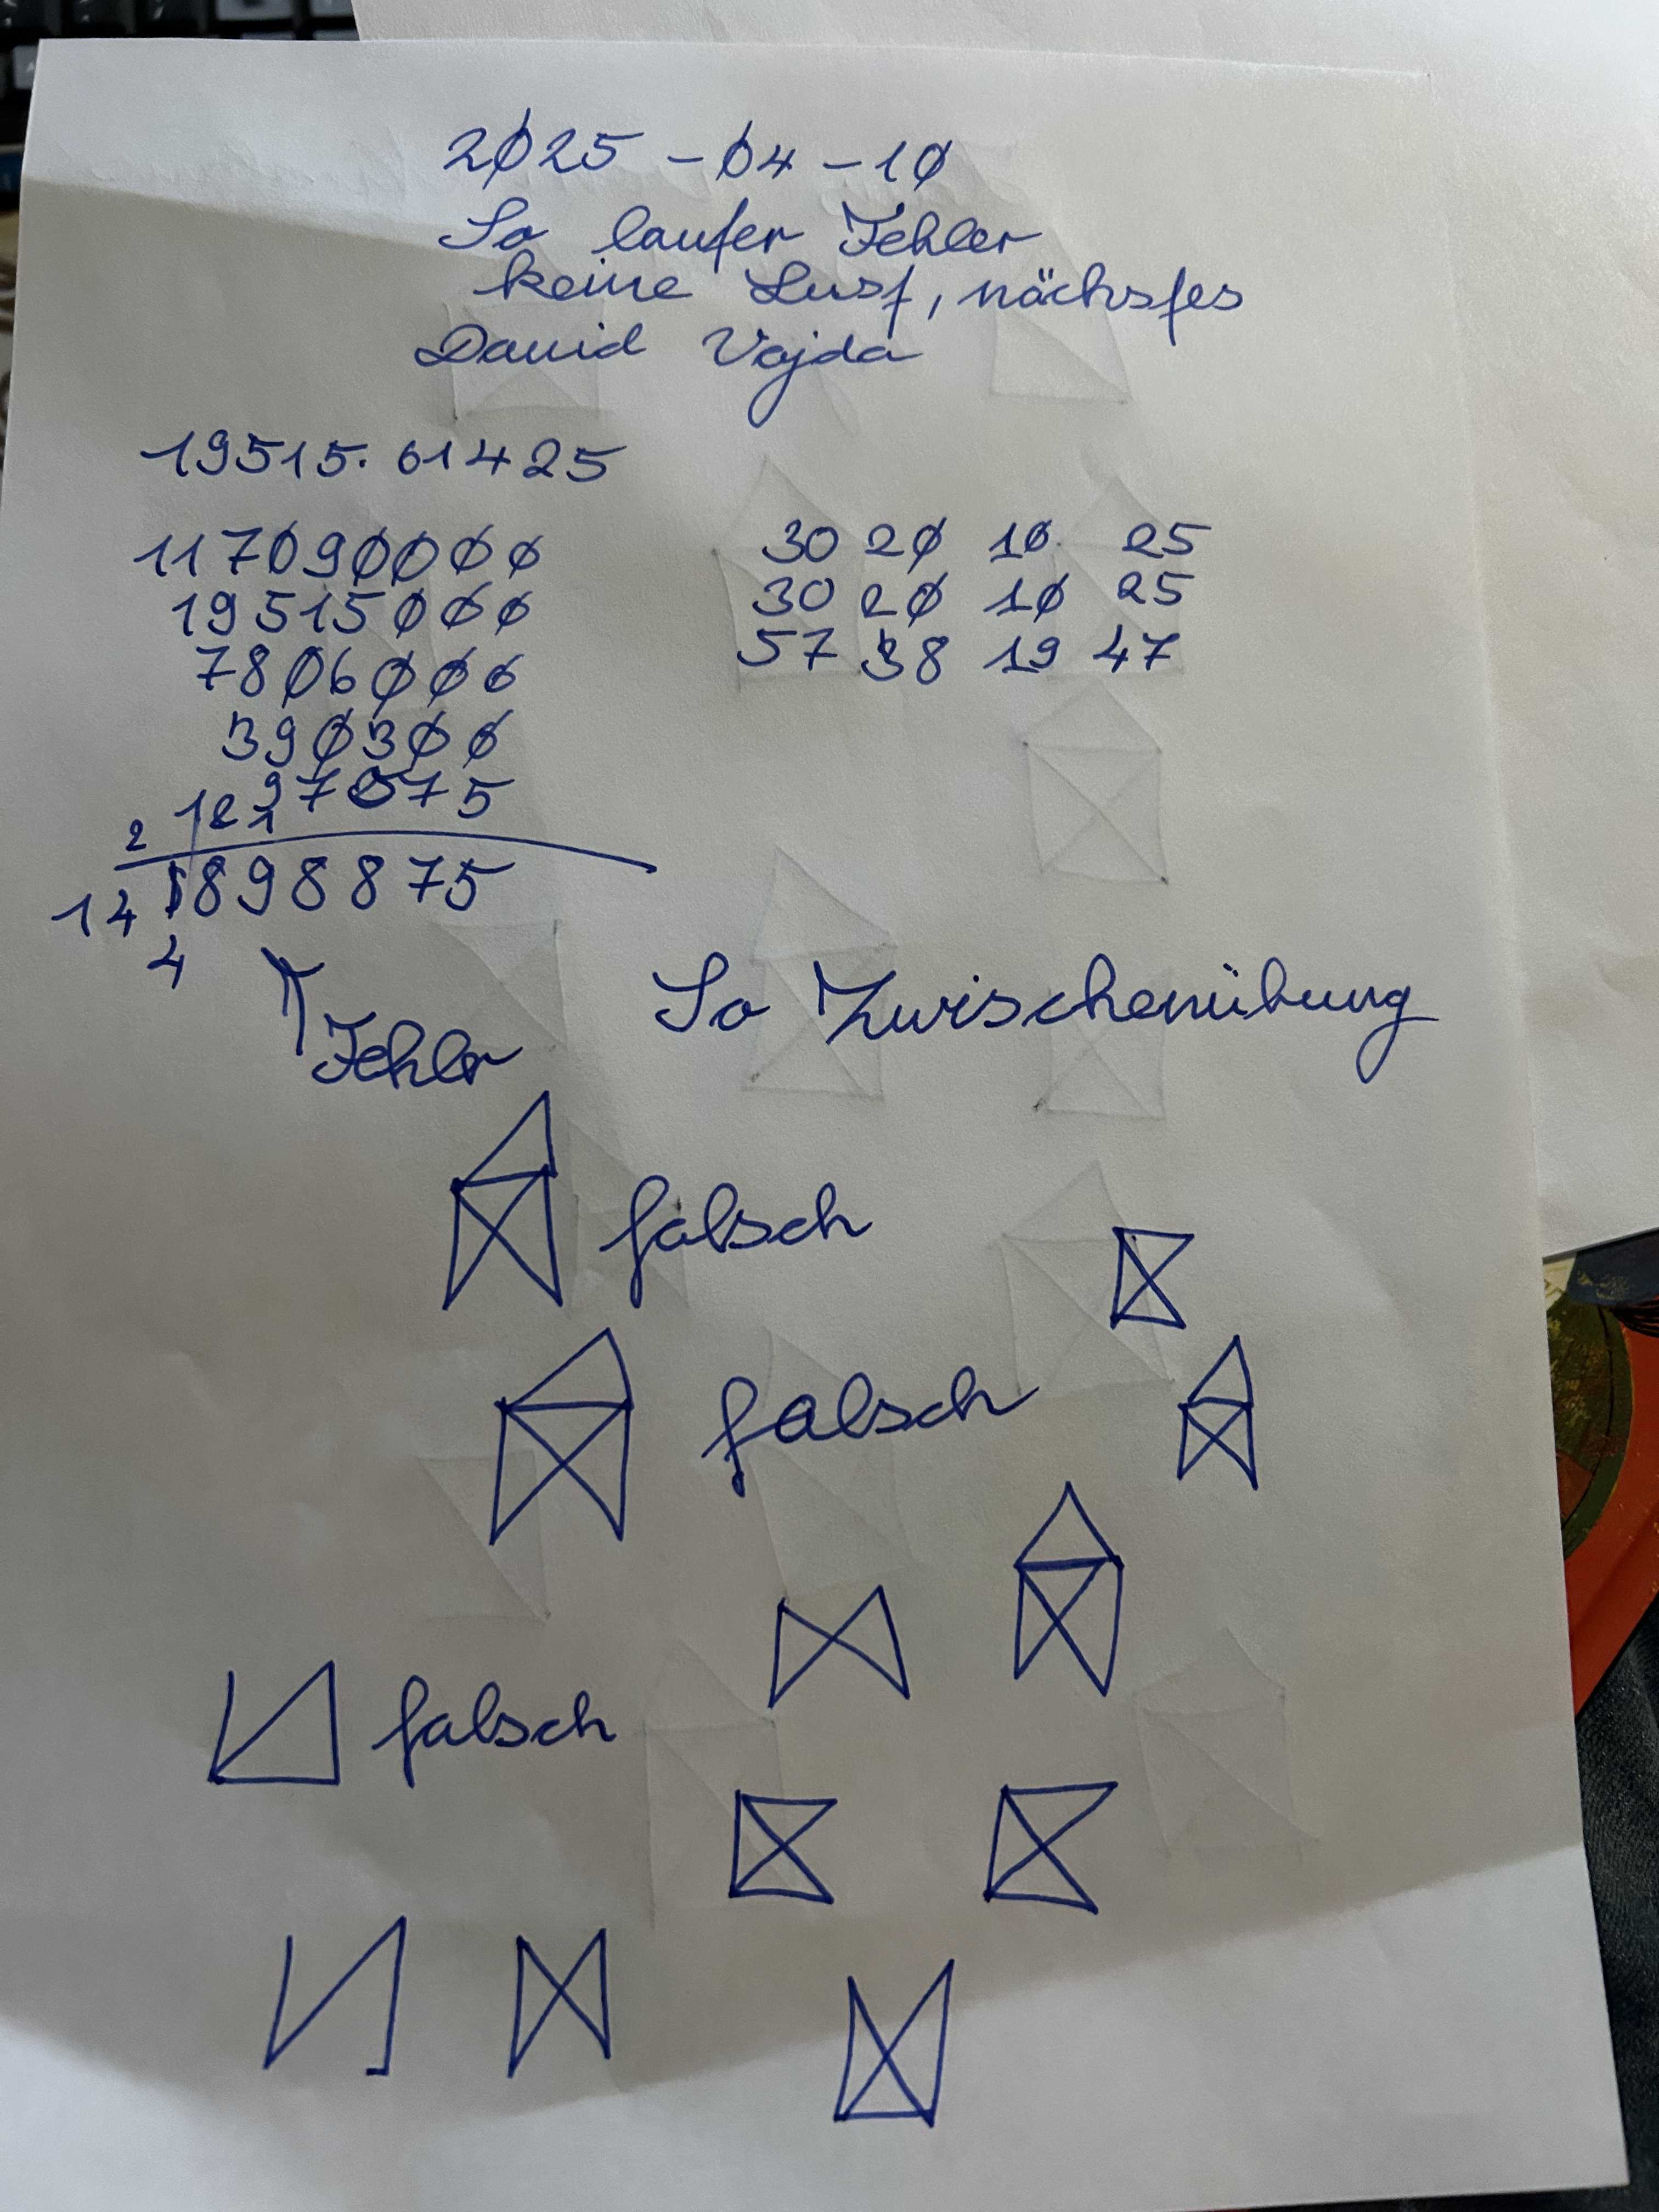 2025-04-10
So laufer Fehler
keine Lust, nächstes
David Vajda
19515. 61425
1170900000
19515000
7806000
390300
97575
2 12 1
14 8898875
4
30 20 10 25
30 20 10 25
57 38 19 47
Fehler
So Zwischenübung
falsch
falsch
falsch